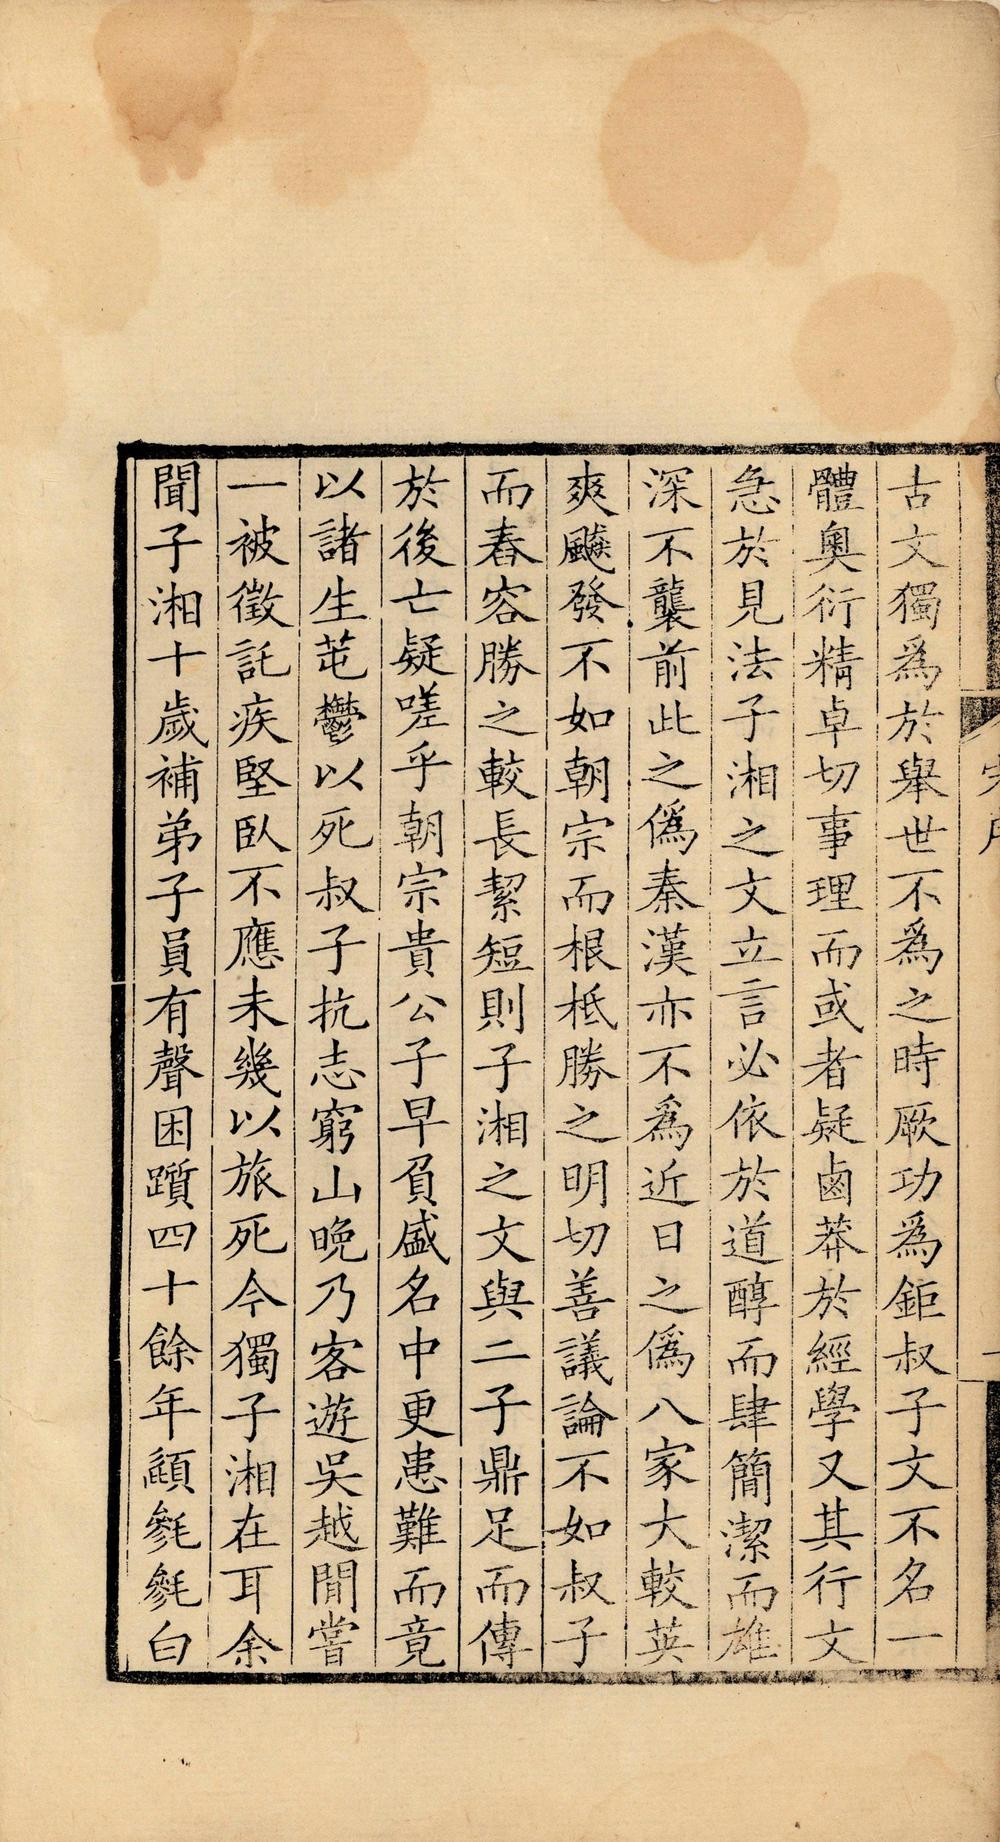 古文獨爲於舉世不爲之時厥功爲鉅叔子文不名一
體奧衍精卓切事理而或者疑鹵莽於經學又其行文
急於見法子湘之文立言必依於道醇而肆簡潔而雄
深不襲前此之僞秦漢亦不爲近日之僞八家大較英
爽飈發不如朝宗而根柢勝之明切善議論不如叔子
而舂容勝之較長絜短則子湘之文與二子鼎足而傳
於後亡疑嗟乎朝宗貴公子早負盛名中更患難而竟
以諸生芚鬱以死叔子抗志窮山晩乃客遊吳越閒嘗
一被徵託疾堅臥不應未幾以旅死今獨子湘在耳余
聞子湘十歲補弟子員有聲困躓四十餘年顓毿毿白